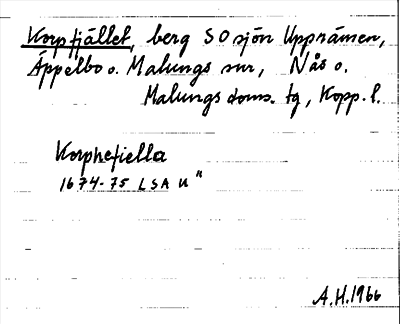 Korpfjället, berg SO sjön Upprämen,
Äppelbo o. Malungs snr, Nås o.
Malungs doms. tg, Kopp. l.
Korphefiella
1674-75 LSA U"
A.H. 1966